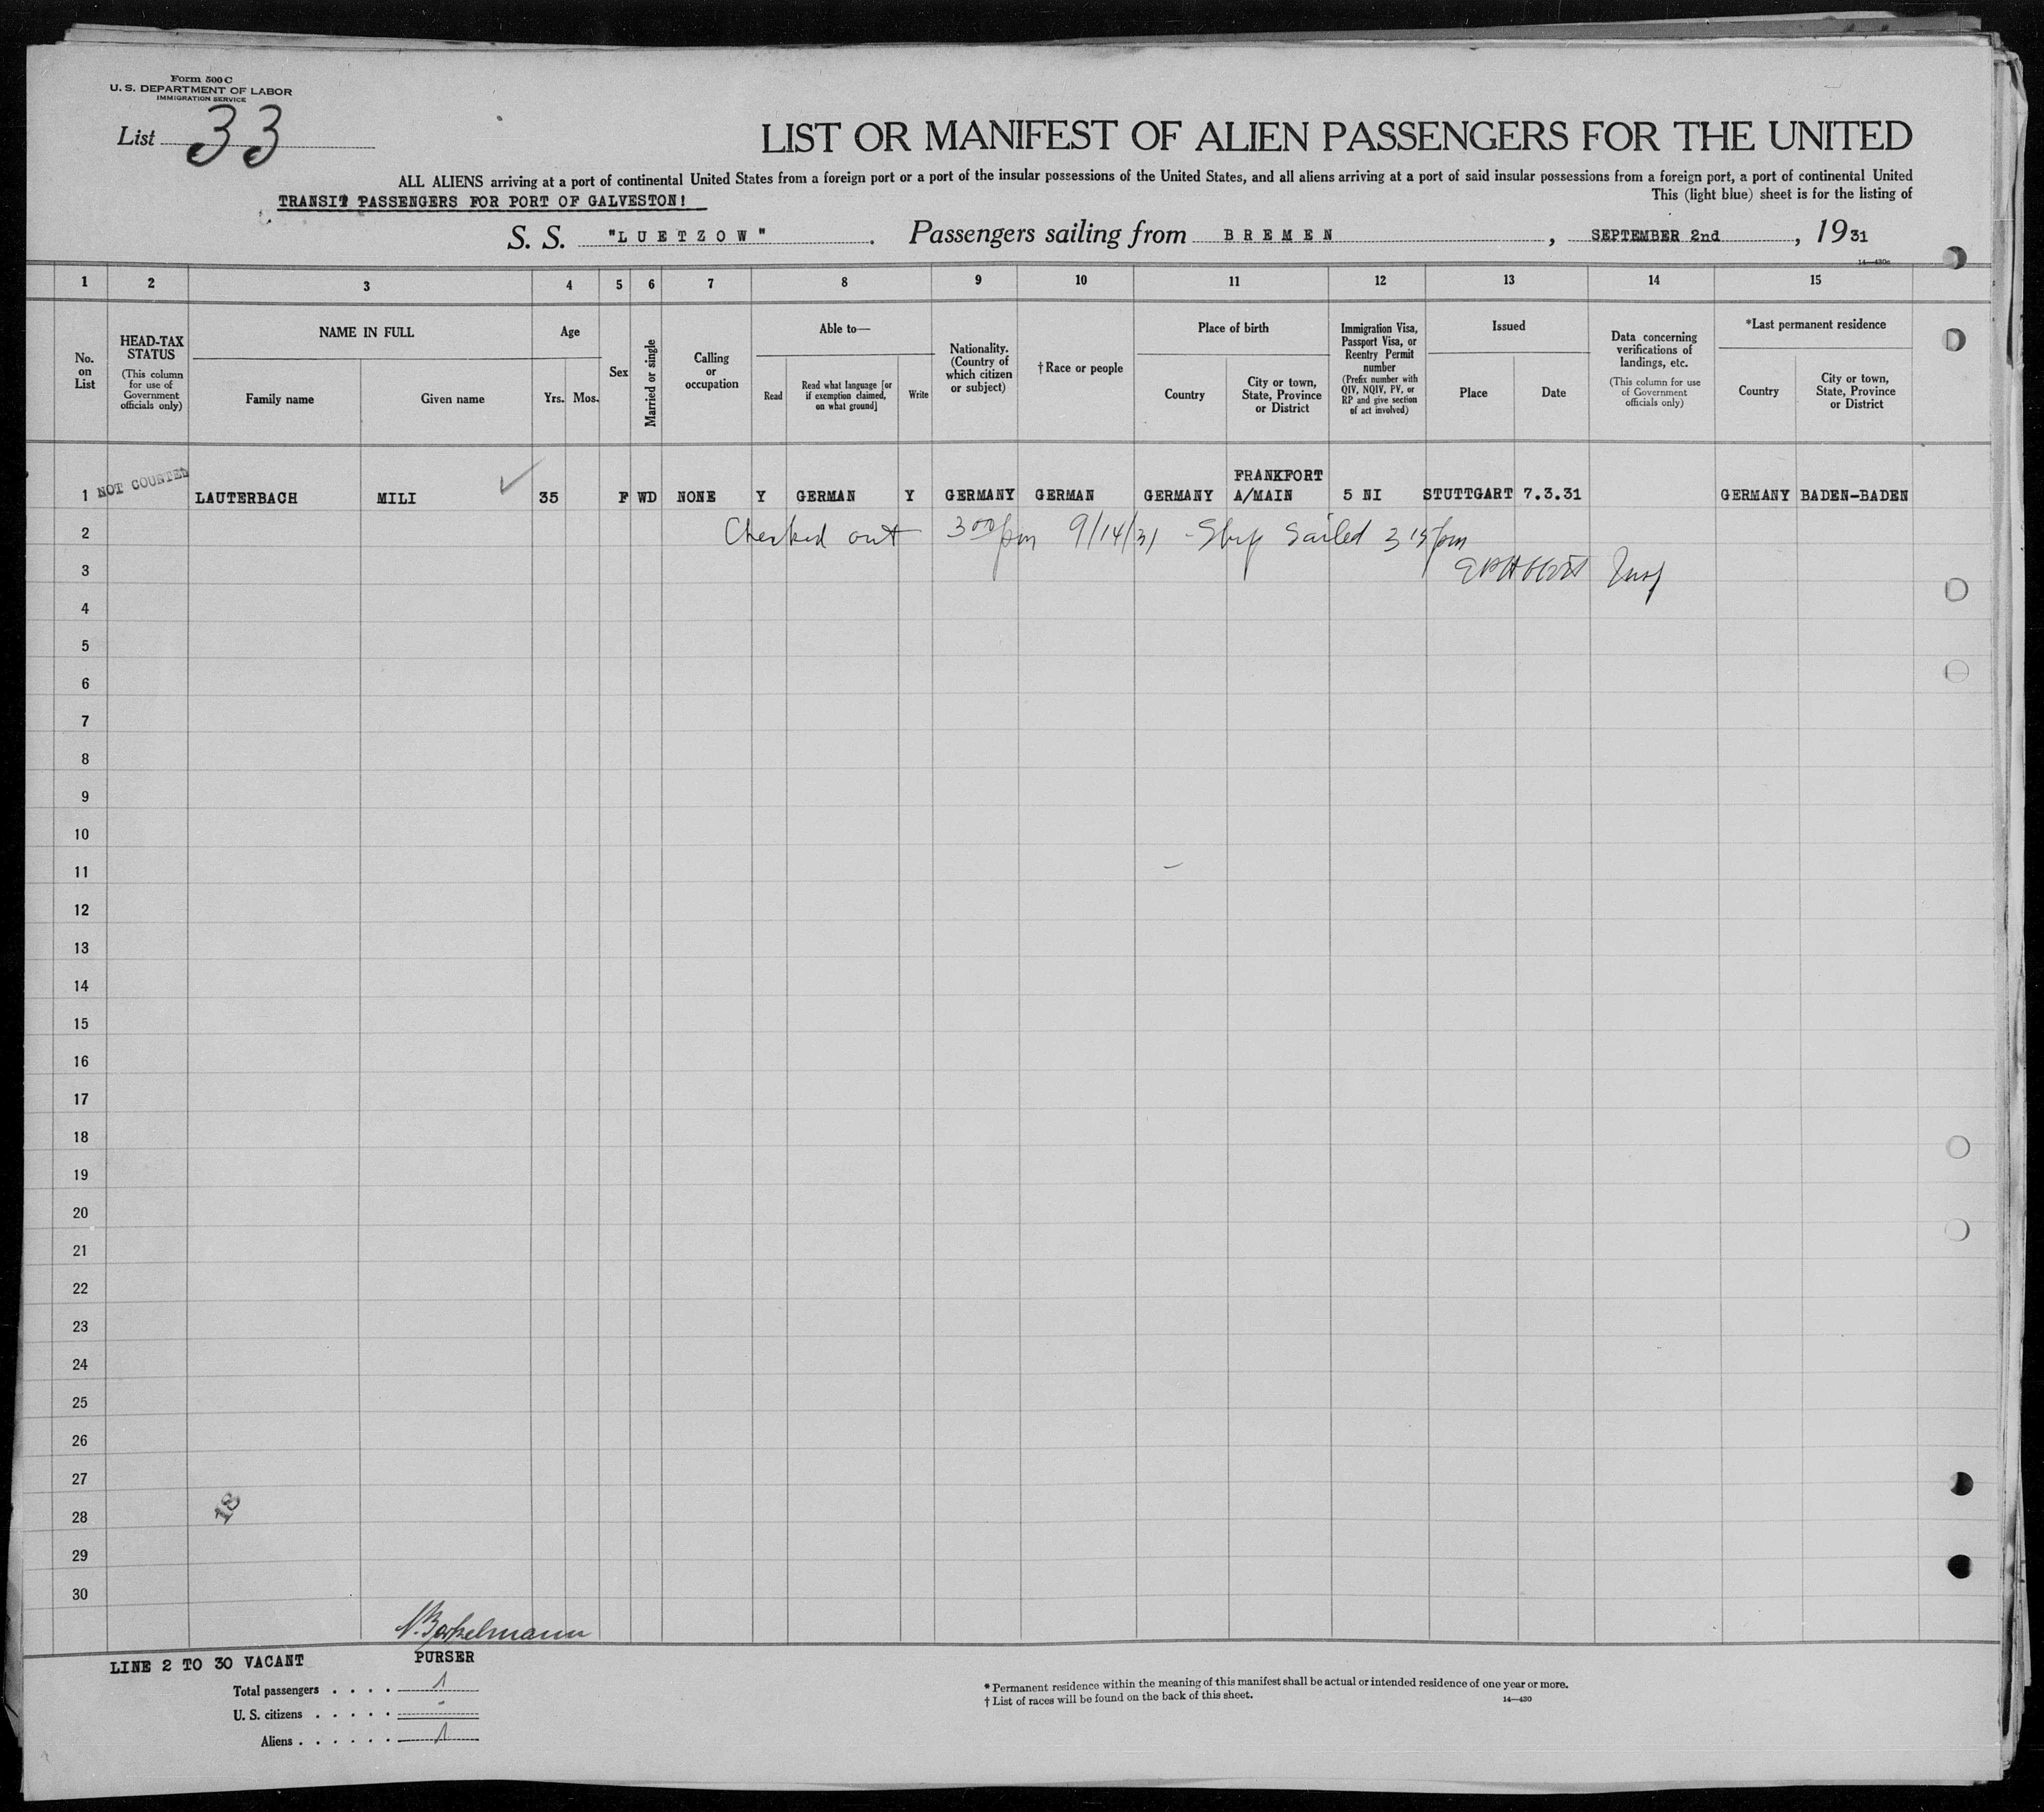 Form 500 C
U. S. DEPARTMENT OF LABOR
IMMIGRATION SERVICE
List 33
LIST OR MANIFEST OF ALIEN PASSENGERS FOR THE UNITED
ALL ALIENS arriving at a port of continental United States from a foreign port or a port of the insular possessions of the United States, and all aliens arriving at a port of said insular possessions from a foreign port, a port of continental United
This (light blue) sheet is for the listing of
TRANSIT PASSENGERS FOR PORT OF GALVESTON!
S. S. "LUETZOW". Passengers sailing from BREMEN, SEPTEMBER 2nd, 1931
14—430c
1 2 3 4 5 6 7 8 9 10 11 12 13 14 15
No. on List
HEAD-TAX STATUS
(This column for use of Government officials only)
NAME IN FULL
Family name
Given name
Age
Yrs. Mos.
Sex
Married or single
Calling or occupation
Able to—
Read
Read what language [or if exemption claimed, on what ground]
Write
Nationality. (Country of which citizen or subject)
† Race or people
Place of birth
Country
City or town, State, Province or District
Immigration Visa, Passport Visa, or Reentry Permit number
(Prefix number with QIV, NQIV, PV, or RP and give section of act involved)
Issued
Place
Date
Data concerning verifications of landings, etc.
(This column for use of Government officials only)
*Last permanent residence
Country
City or town, State, Province or District
1 NOT COUNTED LAUTERBACH MILI 35 F WD NONE Y GERMAN Y GERMANY GERMAN GERMANY FRANKFORT A/MAIN 5 NI STUTTGART 7.3.31 GERMANY BADEN-BADEN
2 Checked out 3 00 pm 9/14/31 - Ship Sailed 3 15 pm
3 Insp
4
5
6
7
8
9
10
11
12
13
14
15
16
17
18
19
20
21
22
23
24
25
26
27
28 18
29
30
PURSER
LINE 2 TO 30 VACANT
Total passengers . . . . 1
U. S. citizens . . . . . -
Aliens . . . . . . 1
* Permanent residence within the meaning of this manifest shall be actual or intended residence of one year or more.
† List of races will be found on the back of this sheet.
14—430